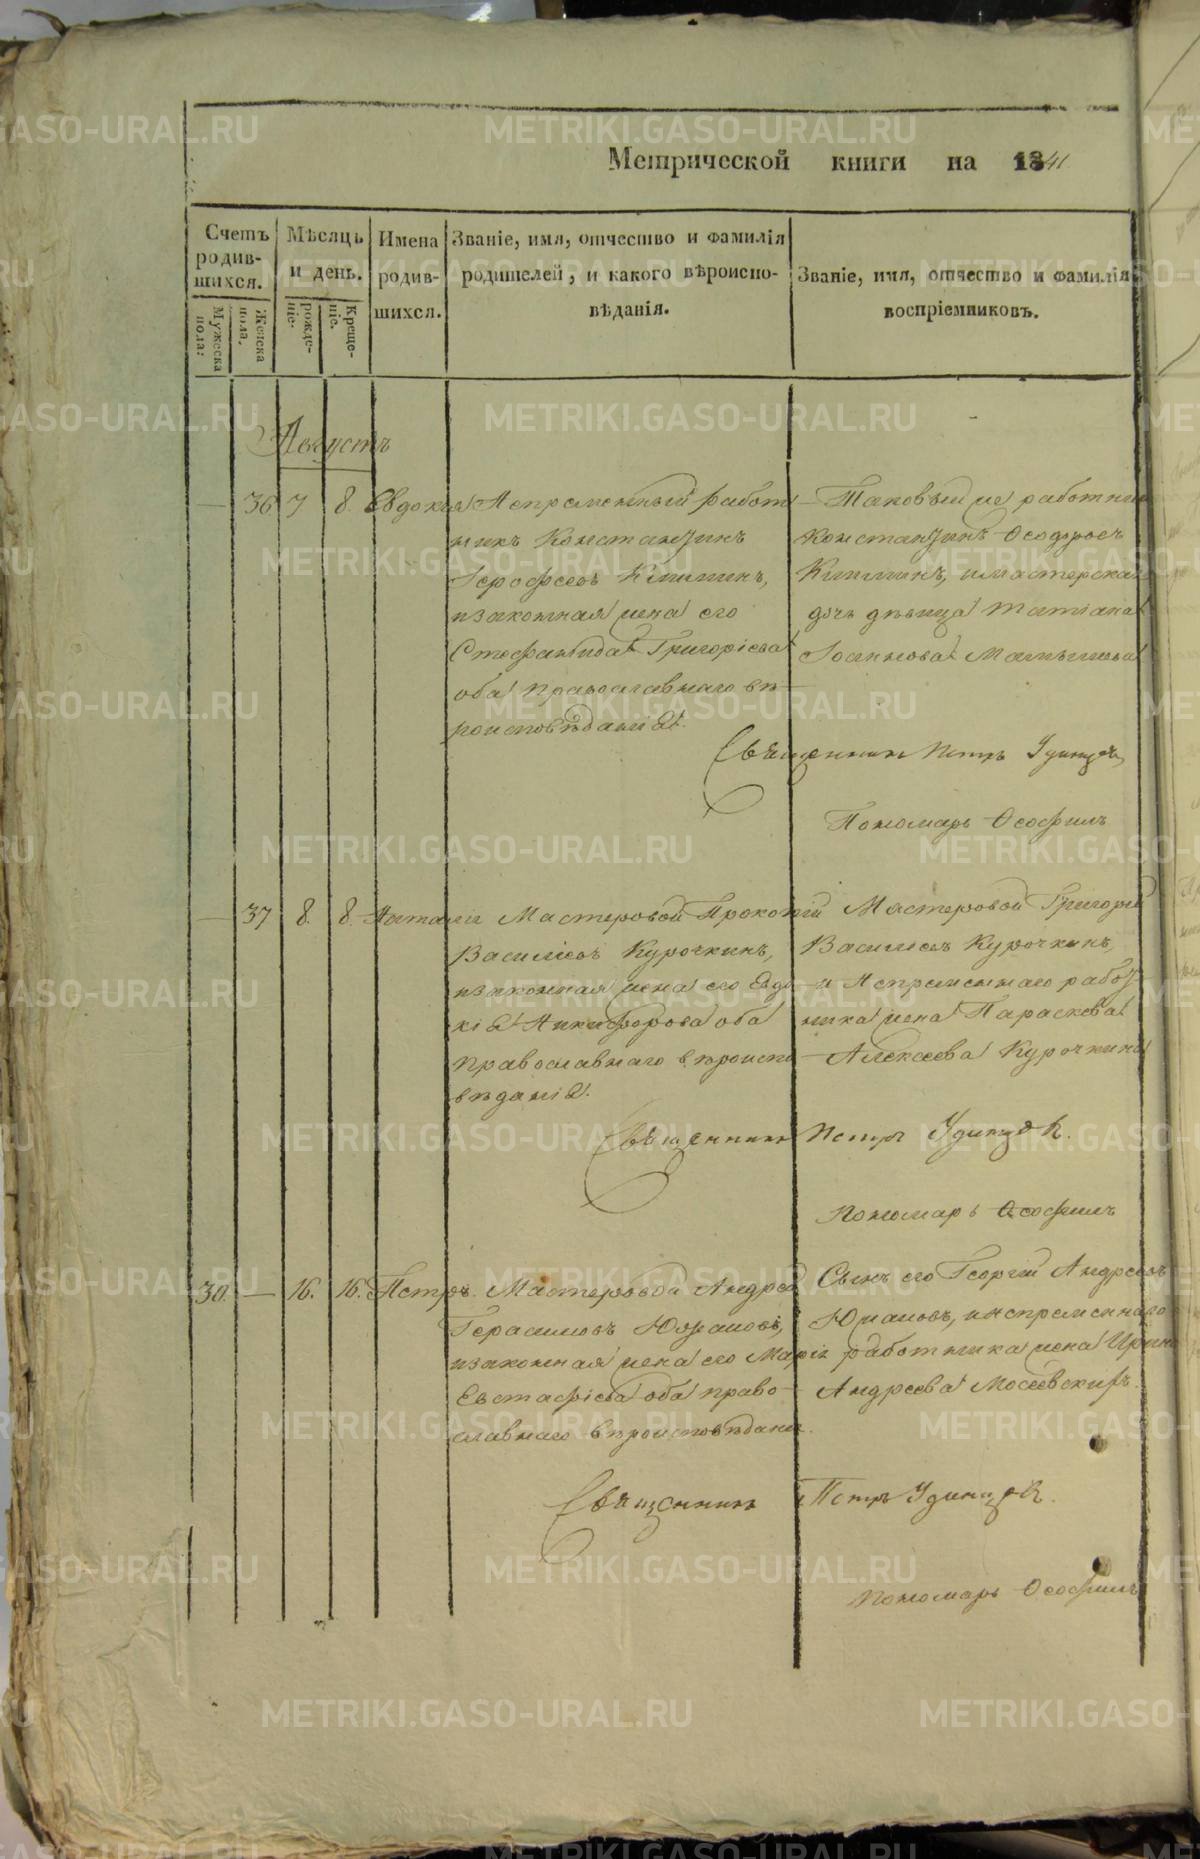 Метрической книги на 1841
Счетъ родив-шихся.
Мѣсяцъ и день.
Имена родив-шихся.
Званіе, имя, отчество и фамилія родителей, и какого вѣроиспо-вѣданія.
Званіе, имя, отчество и фамилія воспріемниковъ.
Мужеска пола.
Женска пола.
рожде-ніе.
Креще-ніе.
Августъ
— 36 7 8. Евдокия
Непременный работ
никъ Константинъ
Ерофеевъ Кипинъ,
изаконная жена его
Стефанида Григоріева
оба православнаго вѣ
роисповѣданія.
Таковый же работник
Константинъ Ѳеодоровъ
Кипинъ, имастерскаго
дочь дѣвица Татіана
Іоаннова
Священникъ Петръ Удинцовъ
Пономарь Ѳеофилъ
— 37 8. 8. Наталія
Мастеровой Прокопій
Василіевъ Курочкинъ,
изаконная жена его Евдо
кія Никифорова оба
православнаго вѣроиспо
вѣданія.
Мастеровой Григорій
Василіевъ Курочкинъ,
и Непременнаго работ
ника жена Параскева
Алексеева Курочкина
Священникъ Петръ Удинцовъ.
Пономарь Ѳеофилъ
30. — 16. 16. Петръ.
Мастеровой Андрей
Герасимовъ Южаковъ,
изаконная жена его Марія
Евстафіева оба право-
славнаго вѣроисповѣдания.
Сынъ его Георгій Андреевъ
Южаковъ, инепременнаго
работника жена Ирина
Андреева Мосеевскихъ.
Священникъ Петръ Удинцовъ.
Пономарь Ѳеофилъ
METRIKI.GASO-URAL.RU